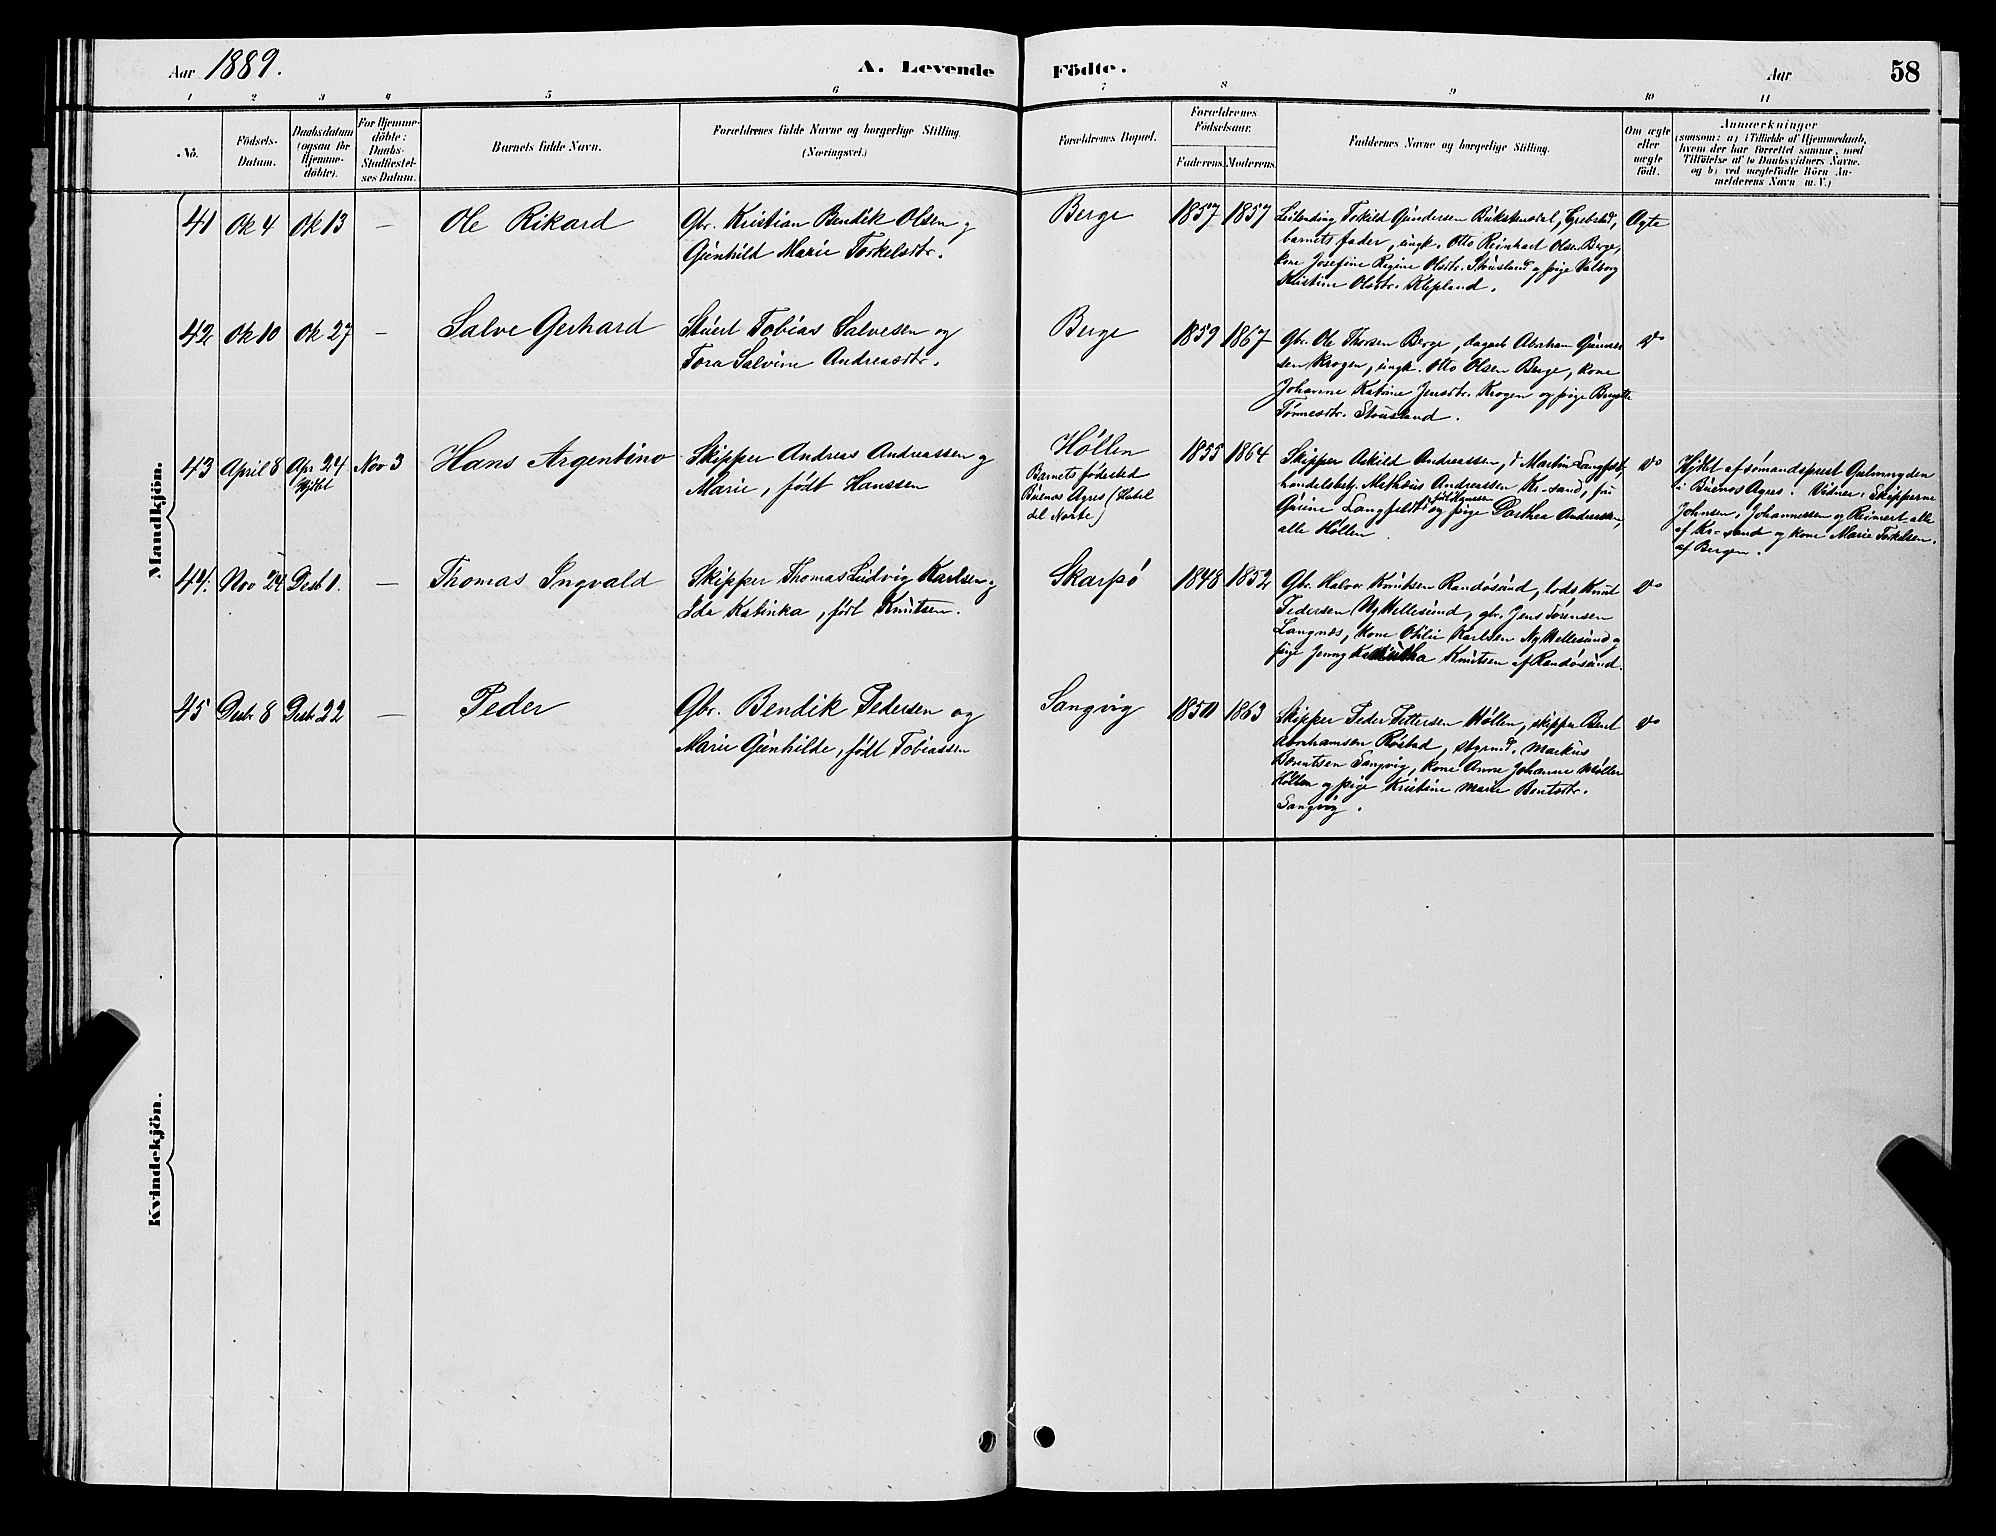 Aar 1889.
A. Levende Födte.
Aar
58
1 2 3 4 5 6 7 8 9 10 11
No.
Födsels-
Datum.
Daabsdatum
(ogsaa for
Hjemme-
döbte).
For Hjemme-
döbte:
Daabs-
Stadfæstel-
ses Datum.
Barnets fulde Navn.
Forældrenes fulde Navne og borgerlige Stilling.
(Næringsvei.)
Forældrenes Bopæl.
Forældrenes
Födselsaar.
Faderens. Moderens.
Faddernes Navne og borgerlige Stilling.
Om ægte
eller
uægte
födt.
Anmærkninger
(saasom: a) i Tilfælde af Hjemmedaab,
hvem der har forrettet samme, med
Tilföielse af to Daabsvidners Navne.
og b) ved uægtefödte Börn An-
melderens Navn m. V.)
Mandkjön.
41 Ok 4 Ok 13 — Ole Rikard
Gbr. Kristian Bendik Olsen og
Gunhild Marie Torkelsdtr.
Berge
1857 1857
Leilending Torkild Gundersen Gjebstad,
barnets fader, ungk. Otto Reinhart Olsen Berge,
kone Josefine Regine Olsdtr. Stousland og pige Valborg
Kristine Olsdtr. Klepland.
Ægte
42 Ok 10 Ok 27 — Salve Gerhard
Stuert Tobias Salvesen og
Tora Salvine Andreasdtr.
Berge
1859 1867
Gbr. Ole Thorsen Berge, dagarb Abraham Gunner
sen Krogen, ungk. Otto Olsen Berge, kone
Johanne Katrine Jensdtr. Krogen og pige Birgitte
Tönnesdtr. Stousland.
do
43 April 8 Apr 24
Hjdbt
Nov 3 Hans Argentino
Skipper Andreas Andreassen og
Marie, født Hanssen
Høllen
Barnets fødested
Buenos Agres (Hotel
del Norte)
1855 1864
Skipper Askild Andreassen, do Martin Langfeldt,
handelsbetj. Mathæus Andreassen Kr-sand, fru
Gurine Langfeldt født Hanssen og pige Dorthea Andreassen,
alle Høllen
do
Hjdbt af sömandsprest
i Buenos Agres. Vidner. Skipperne
Johnsen, Johannessen og Reimert alle
af Kr-sand og kone Marie Torkelsen.
af Bergen.
44. Nov 24 Desb 1. — Thomas Ingvald
Skipper Thomas Ludvig Karlsen og
Ida Katinka, født Knutsen.
Skarpö
1848 1852
Gbr. Halvor Knutsen Randösund, lods Knut
Pedersen Ny Hellesund, gbr. Jens Sörensen
Langnæs, kone Otilie Karlsen Ny Hellesund og
pige Jenny Knutsen af Randösund.
do
45 Desbr 8 Desbr 22 — Peder
Gbr. Bendik Pedersen og
Marie Gunhilde, født Tobiassen
Sangvig
1850 1863
Skipper Peder Pettersen Høllen, skipper Bent
Abrahamsen Röstad, styrmd. Markus
Berentsen Sangvig, kone Anne Johanne Møller
Høllen og pige Kristine Marie Bentsdtr.
Sangvig.
do
Kvindekjön.